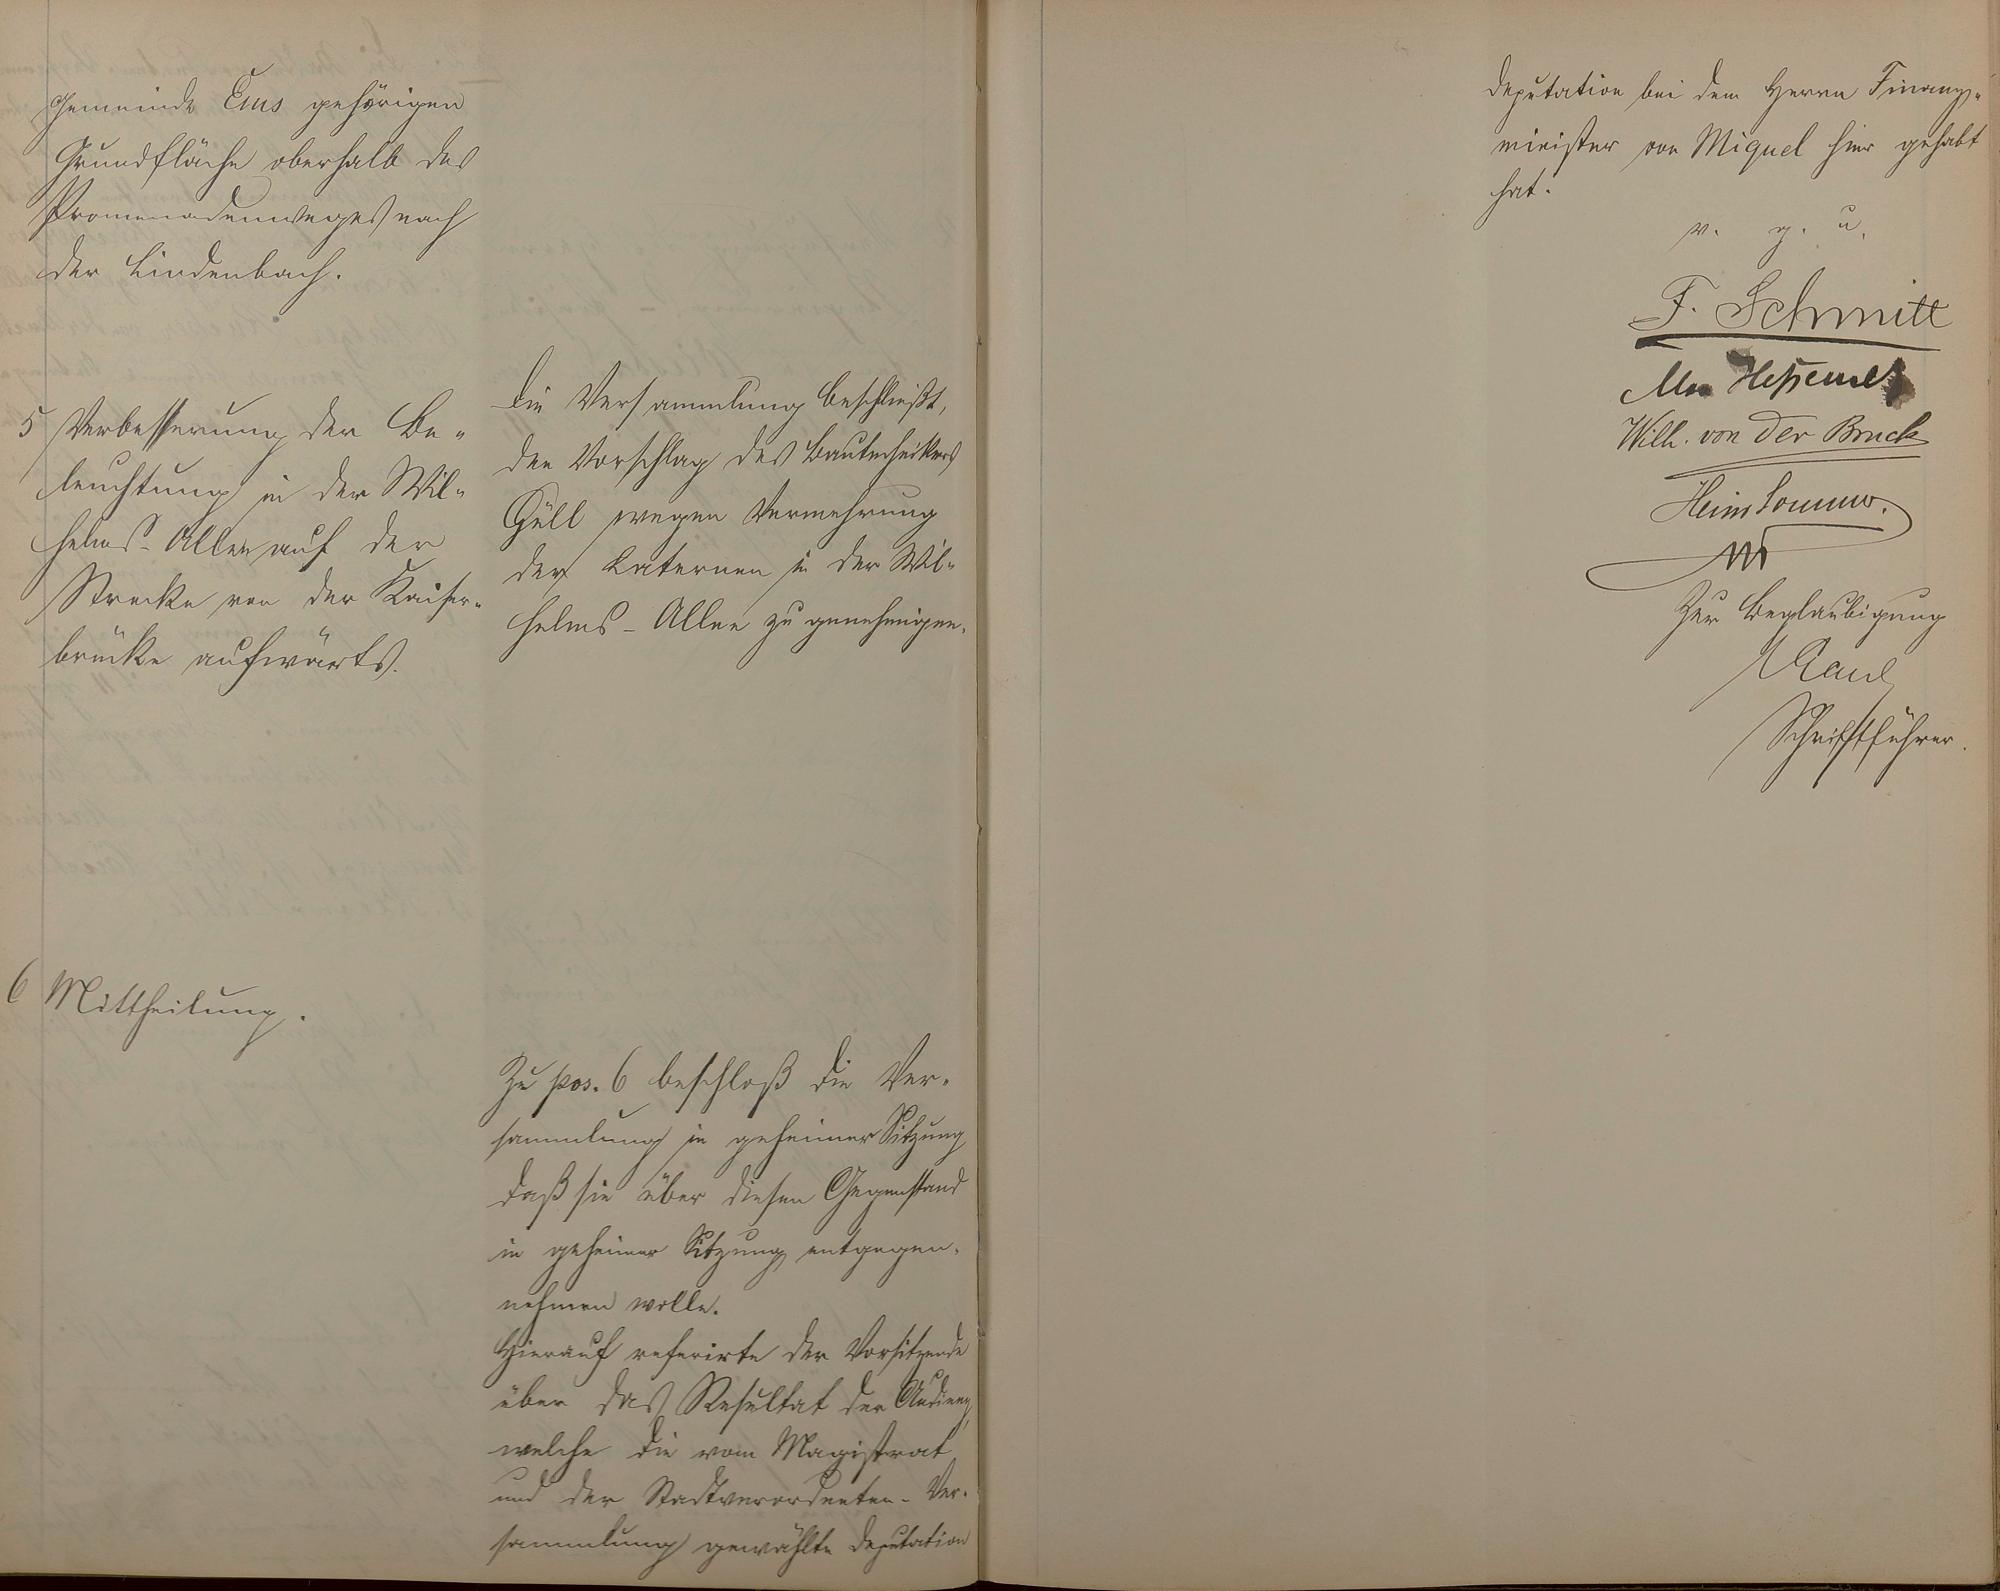 Gemeinde Ems gehörigen
Grundfläche oberhalb des
Promenadenweges nach
der Lindenbach.
5 Verbesserung der Be-
leuchtung in der Wil-
helms-Allee auf der
Strecke von der Kaiser-
brücke aufwärts.
Die Versammlung beschließt,
den Vorschlag des Bautechnikers
Güll wegen Vermehrung
der Laternen in der Wil-
helms-Allee zu genehmigen.
6 Mittheilung.
Zu pos. 6 beschloß die Ver-
sammlung in geheimer Sitzung
daß sie über diesen Gegenstand
in geheimer Sitzung entgegen-
nehmen wolle.
Hierauf referirte der Vorsitzende
über das Resultat der Audienz,
welche die vom Magistrat
und der Stadtverordneten-Ver-
sammlung gewählte Deputation
Deputation bei dem Herrn Finanz-
minister von Miquel hier gehabt
hat.
v. g. u.
F. Schmitt
Wilh. von der Bruck
Heinr Sommer.
Zur Beglaubigung
Schriftführer.